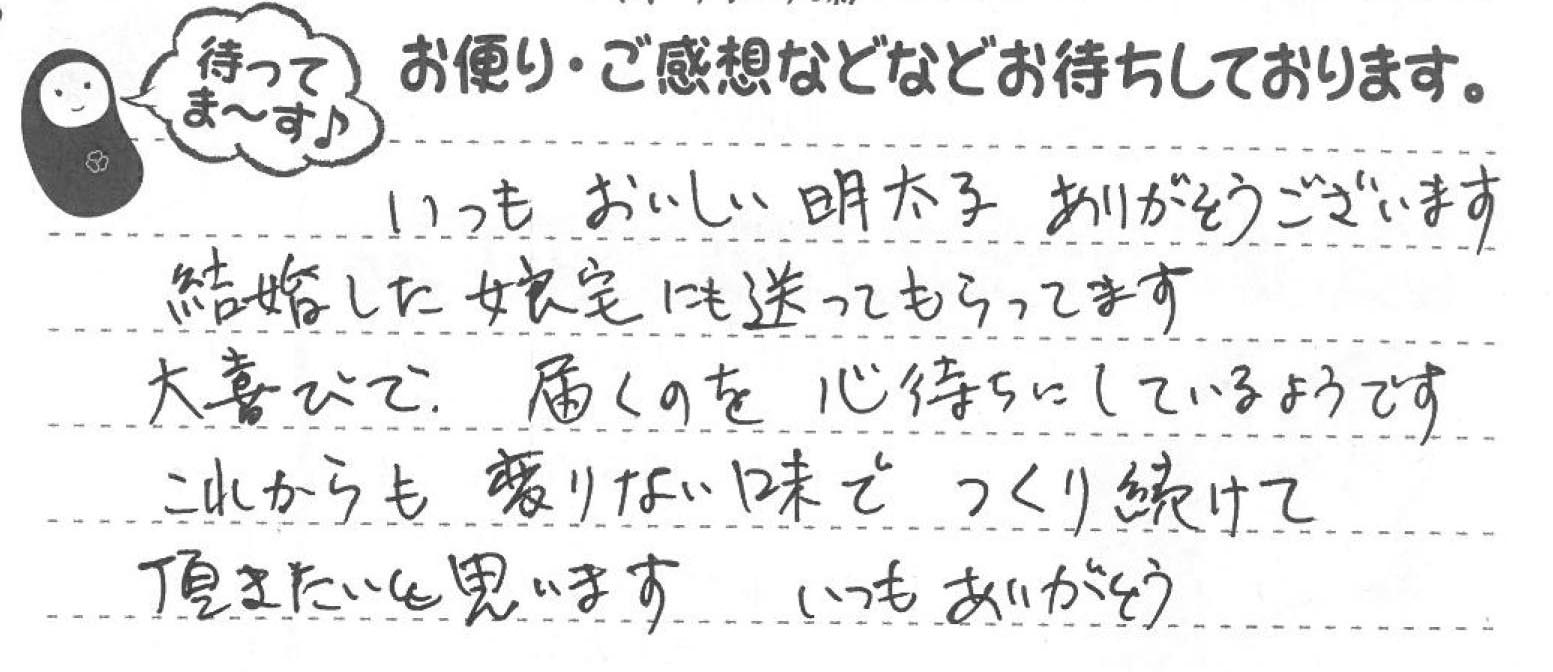 待って
ま〜す♪
お便り・ご感想などなどお待ちしております。
いつも おいしい 明太子 ありがとうございます
結婚した 娘宅にも送ってもらってます
大喜びで. 届くのを 心待ちにしているようです
これからも 変りない味で つくり続けて
頂きたいと思います いつも ありがとう